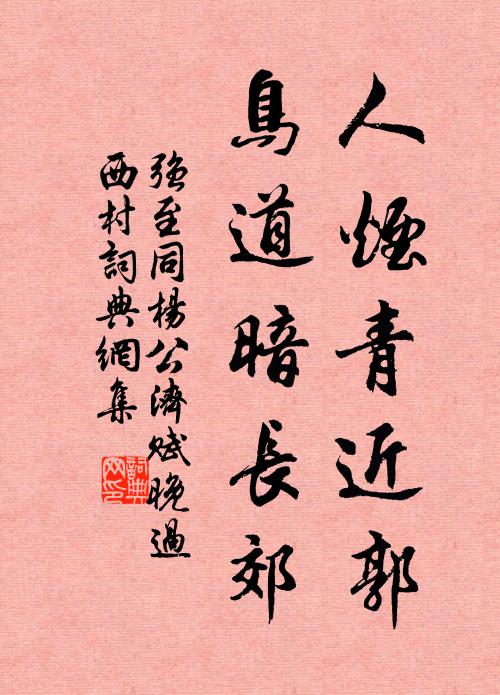 人煙青近郭
鳥道暗長郊
強至同楊公濟賦晚過
西村詞典網集
詞典網印